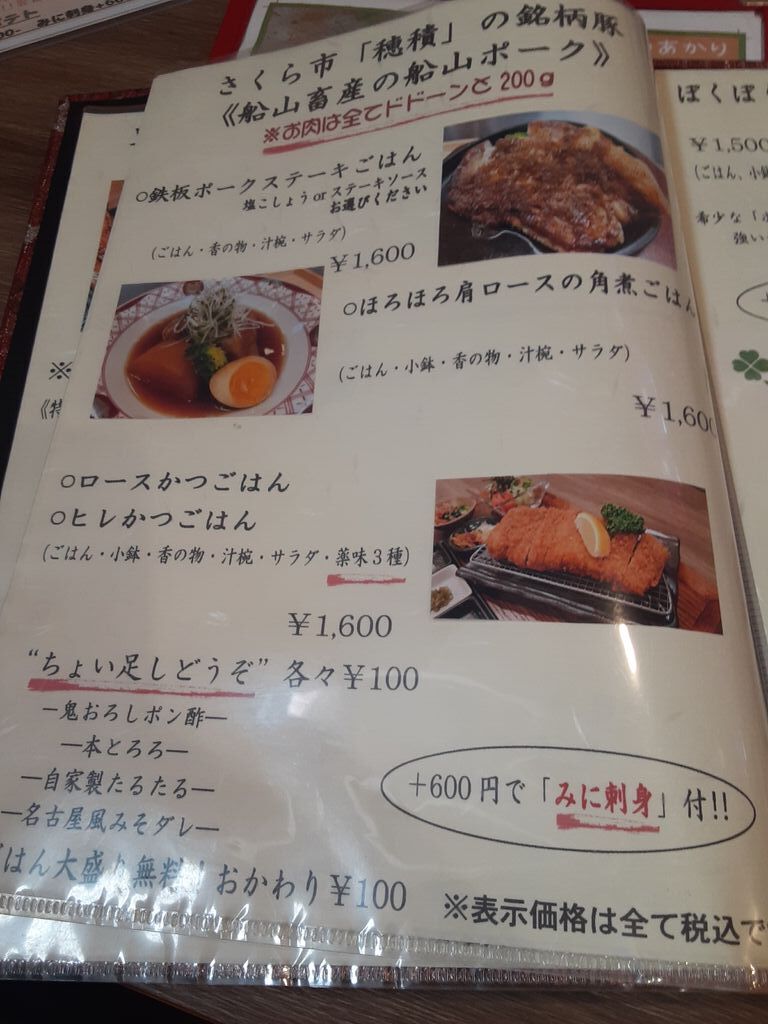 みに刺身+60
のあかり
さくら市「穂積」の銘柄豚
《船山畜産の船山ポーク》
※お肉は全てドドーンと200g
○鉄板ポークステーキごはん
塩こしょう or ステーキソース
お選びください
(ごはん・香の物・汁椀・サラダ)
¥1,600
○ほろほろ肩ロースの角煮ごはん
(ごはん・小鉢・香の物・汁椀・サラダ)
¥1,600
○ロースかつごはん
○ヒレかつごはん
(ごはん・小鉢・香の物・汁椀・サラダ・薬味3種)
¥1,600
“ちょい足しどうぞ” 各々¥100
―鬼おろしポン酢―
―本とろろ―
―自家製たるたる―
―名古屋風みそダレ―
+600円で「みに刺身」付!!
ごはん大盛り無料!おかわり¥100
※表示価格は全て税込で
※
《特
ぼくぼ
¥1,500
(ごはん、小鉢
希少な「ホ
強い